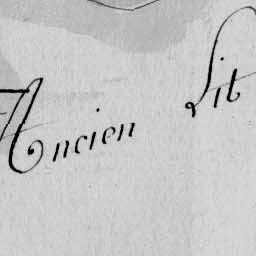 Ancien Lit